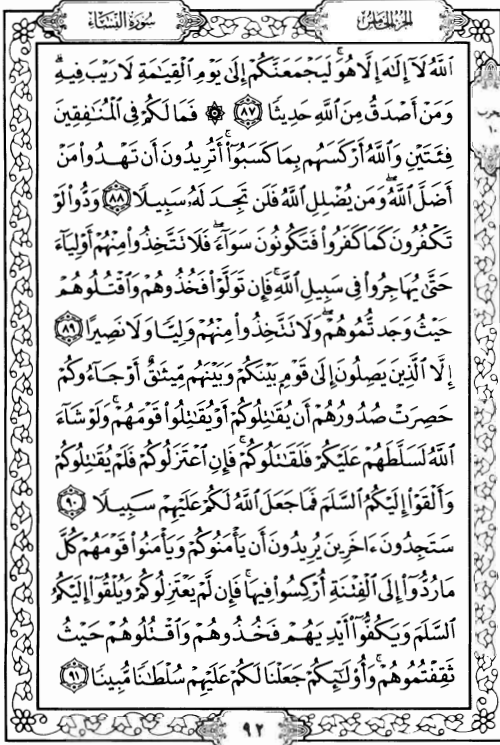 سُورَةُ النِّسَاءِ
الجُزْءُ الخَامِسُ
ٱللَّهُ لَآ إِلَٰهَ إِلَّا هُوَ ۚ لَيَجْمَعَنَّكُمْ إِلَىٰ يَوْمِ ٱلْقِيَٰمَةِ لَا رَيْبَ فِيهِ ۗ
وَمَنْ أَصْدَقُ مِنَ ٱللَّهِ حَدِيثًا ٨٧ ۞ فَمَا لَكُمْ فِى ٱلْمُنَٰفِقِينَ
فِئَتَيْنِ وَٱللَّهُ أَرْكَسَهُم بِمَا كَسَبُوٓا۟ ۚ أَتُرِيدُونَ أَن تَهْدُوا۟ مَنْ
أَضَلَّ ٱللَّهُ ۖ وَمَن يُضْلِلِ ٱللَّهُ فَلَن تَجِدَ لَهُۥ سَبِيلًا ٨٨ وَدُّوا۟ لَوْ
تَكْفُرُونَ كَمَا كَفَرُوا۟ فَتَكُونُونَ سَوَآءً ۖ فَلَا تَتَّخِذُوا۟ مِنْهُمْ أَوْلِيَآءَ
حَتَّىٰ يُهَاجِرُوا۟ فِى سَبِيلِ ٱللَّهِ ۚ فَإِن تَوَلَّوْا۟ فَخُذُوهُمْ وَٱقْتُلُوهُمْ
حَيْثُ وَجَدتُّمُوهُمْ ۖ وَلَا تَتَّخِذُوا۟ مِنْهُمْ وَلِيًّا وَلَا نَصِيرًا ٨٩
إِلَّا ٱلَّذِينَ يَصِلُونَ إِلَىٰ قَوْمٍۭ بَيْنَكُمْ وَبَيْنَهُم مِّيثَٰقٌ أَوْ جَآءُوكُمْ
حَصِرَتْ صُدُورُهُمْ أَن يُقَٰتِلُوكُمْ أَوْ يُقَٰتِلُوا۟ قَوْمَهُمْ ۚ وَلَوْ شَآءَ
ٱللَّهُ لَسَلَّطَهُمْ عَلَيْكُمْ فَلَقَٰتَلُوكُمْ ۚ فَإِنِ ٱعْتَزَلُوكُمْ فَلَمْ يُقَٰتِلُوكُمْ
وَأَلْقَوْا۟ إِلَيْكُمُ ٱلسَّلَمَ فَمَا جَعَلَ ٱللَّهُ لَكُمْ عَلَيْهِمْ سَبِيلًا ٩٠
سَتَجِدُونَ ءَاخَرِينَ يُرِيدُونَ أَن يَأْمَنُوكُمْ وَيَأْمَنُوا۟ قَوْمَهُمْ كُلَّ
مَا رُدُّوٓا۟ إِلَى ٱلْفِتْنَةِ أُرْكِسُوا۟ فِيهَا ۚ فَإِن لَّمْ يَعْتَزِلُوكُمْ وَيُلْقُوٓا۟ إِلَيْكُمُ
ٱلسَّلَمَ وَيَكُفُّوٓا۟ أَيْدِيَهُمْ فَخُذُوهُمْ وَٱقْتُلُوهُمْ حَيْثُ
ثَقِفْتُمُوهُمْ ۚ وَأُو۟لَٰٓئِكُمْ جَعَلْنَا لَكُمْ عَلَيْهِمْ سُلْطَٰنًا مُّبِينًا ٩١
٩٢